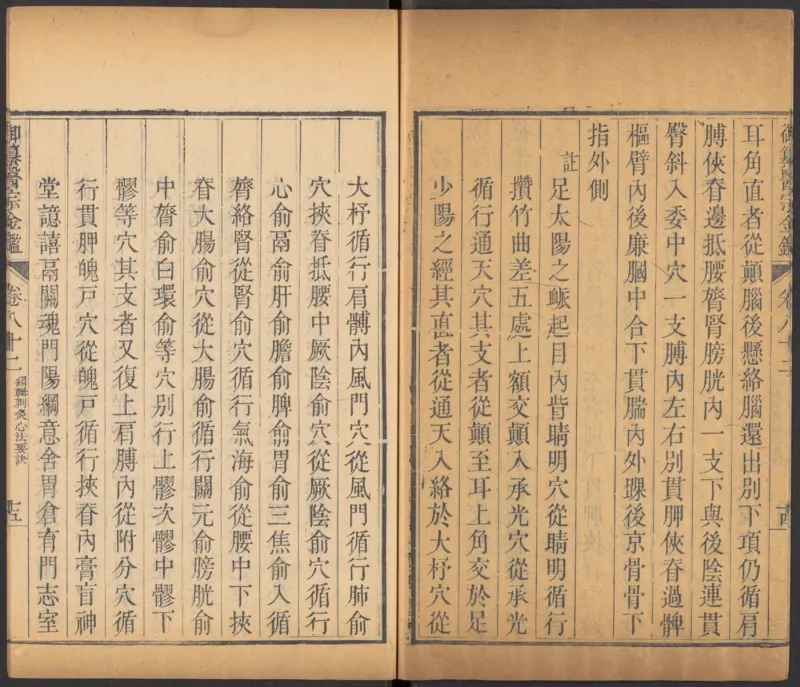 御纂醫宗金鑑
卷八十二
十四
耳角直者從顛腦後懸絡腦還出別下項仍循肩
膊俠脊邊抵腰膂腎膀胱內一支下與後陰連貫
臀斜入委中穴一支膊內左右別貫胛俠脊過髀
樞臂內後廉膕中合下貫腨內外踝後京骨骨下
指外側
註足太陽之䘑起目內眥睛明穴從睛明循行
攢竹曲差五處上額交顛入承光穴從承光
循行通天穴其支者從顛至耳上角交於足
少陽之經其直者從通天入絡於大杼穴從
大杼循行肩髆內風門穴從風門循行肺俞
穴挾脊抵腰中厥陰俞穴從厥陰俞穴循行
心俞膈俞肝俞膽俞脾俞胃俞三焦俞入循
膂絡腎從腎俞穴循行氣海俞從腰中下挾
脊大腸俞穴從大腸俞循行關元俞膀胱俞
中膂俞白環俞等穴別行上髎次髎中髎下
髎等穴其支者又復上肩膊內從附分穴循
行貫胛魄戶穴從魄戶循行挾脊內膏肓神
堂譩譆膈關魂門陽綱意舍胃倉肓門志室
御纂醫宗金鑑
卷八十二
編輯刺灸心法要訣
十五